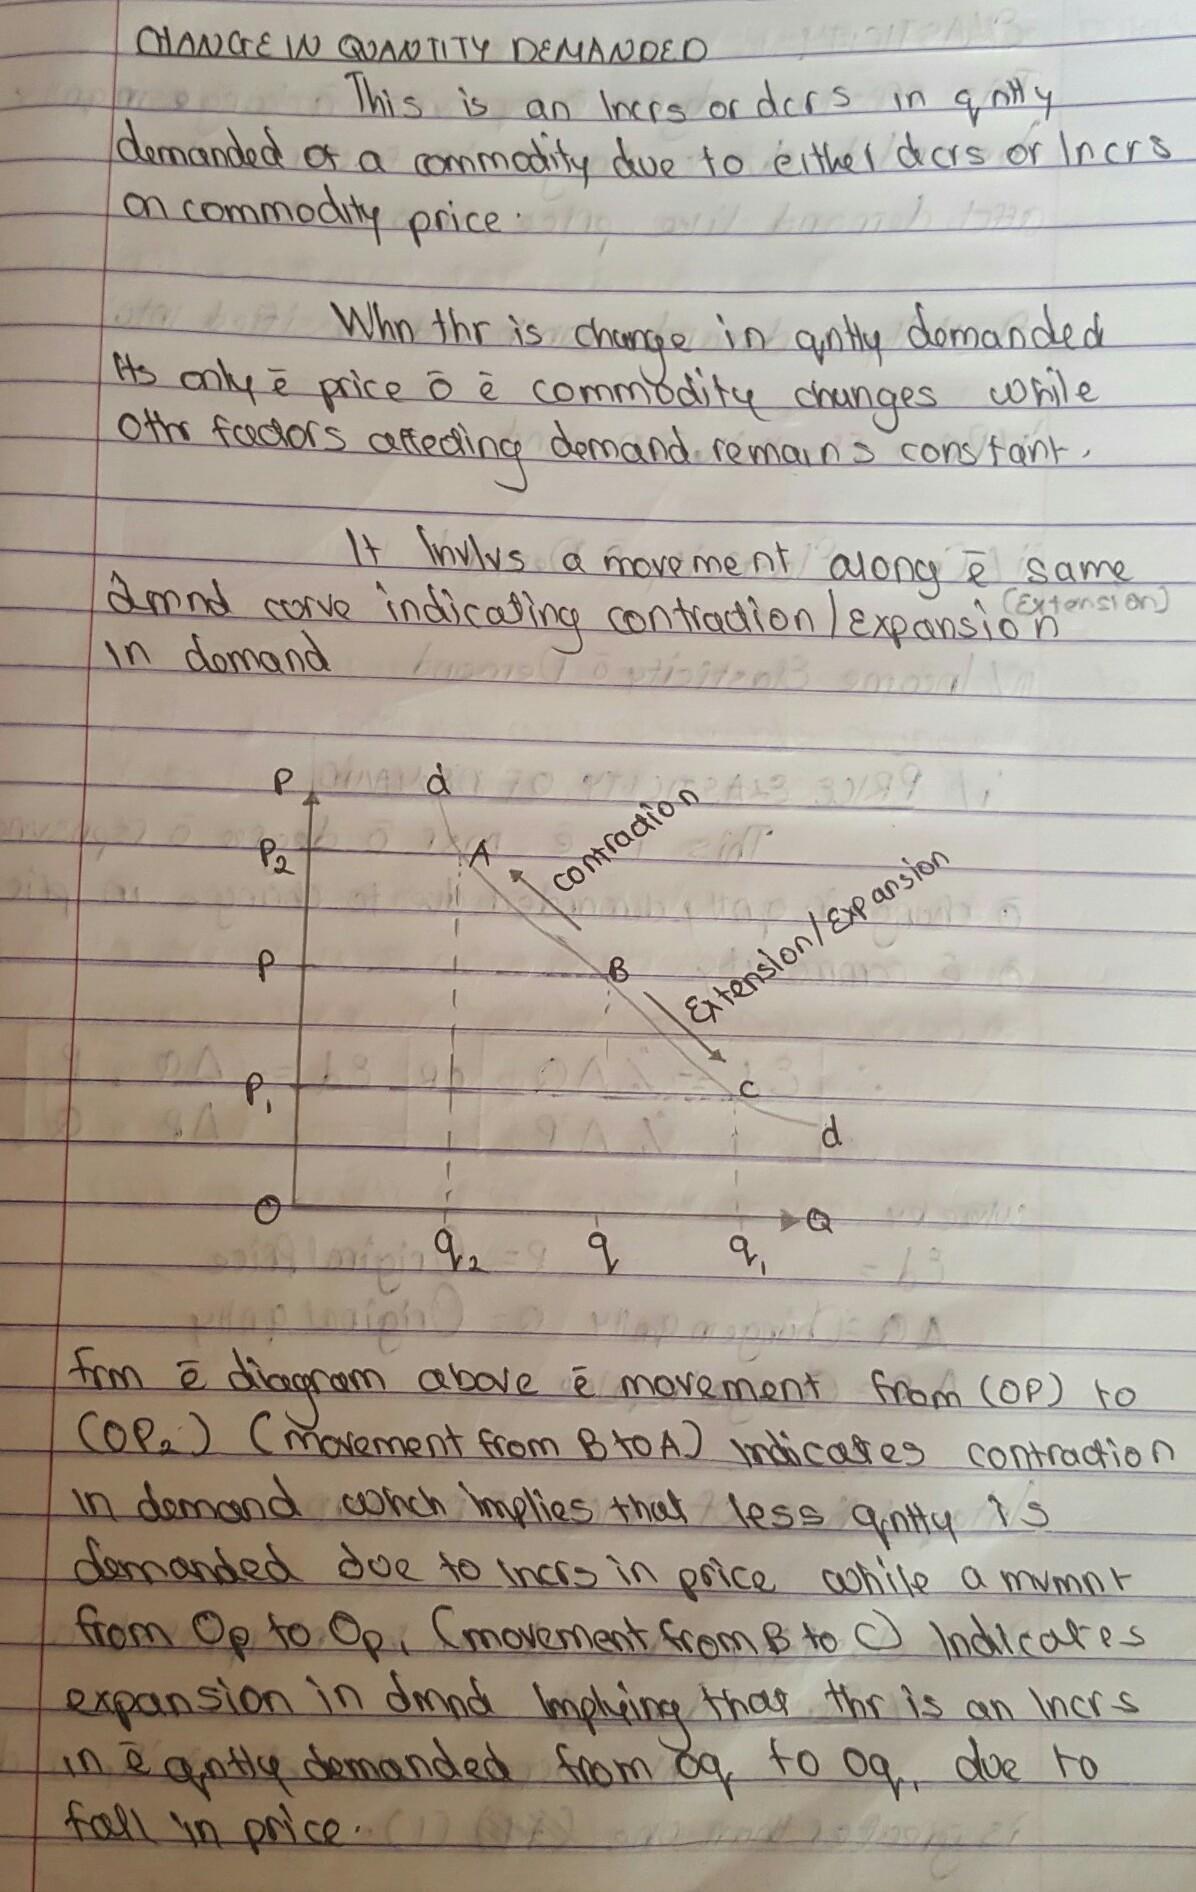 CHANGE IN QUANTITY DEMANDED
This is an Incrs or dcrs in qntty
demanded of a commodity due to either dcrs or Incrs
on commodity price.
Whn thr is change in qntty demanded
Its only ē price ō ē commodity changes while
Othr factors affecting demand remains constant.
It Invlvs a movement along ē same
dmnd curve indicating contraction/expansion (Extension)
in demand
P d
P₂ A contraction
P B Extension/Expansion
P₁ C
d
O Q
q₂ q q₁
frm ē diagram above ē movement from (OP) to
(OP₂) (Movement from B to A) Indicates contraction
in demand which implies that less qntty is
demanded due to incrs in price while a mvmnt
from Op to Op₁ (movement from B to C) Indicates
expansion in dmnd Implying that thr is an Incrs
in ē qntty demanded from oq to oq₁ due to
fall in price.